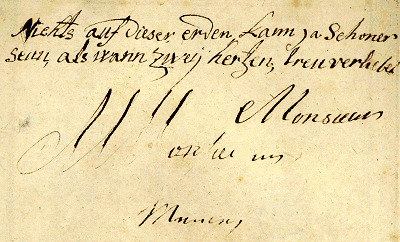 Nichts auf dieser erden, kann ja Schöner
seÿn, als wann zweÿ hertzen, treu verliebet
M M Monsieur
onsieurs